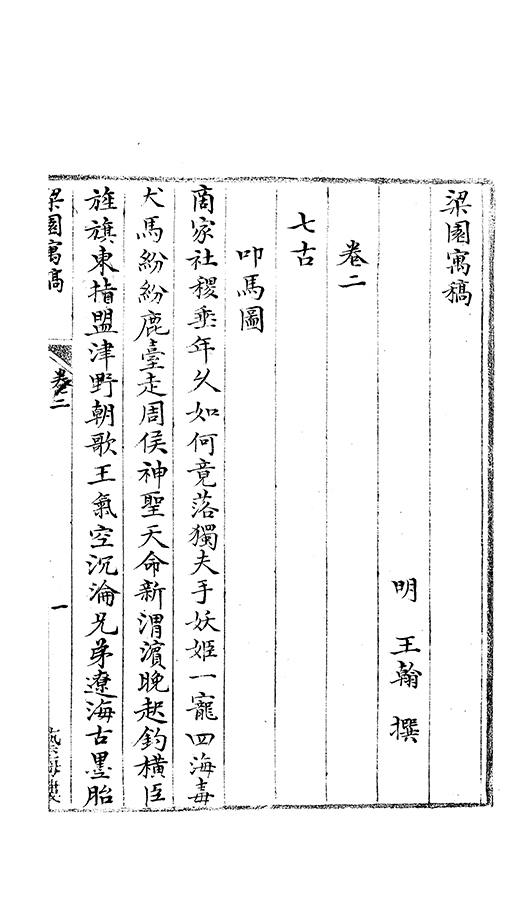 梁園寓稿
明 王翰 撰
卷二
七古
叩馬圖
商家社稷垂年久如何竟落獨夫手妖姬一寵四海毒
犬馬紛紛鹿臺走周侯神聖天命新渭濱晚起釣橫臣
旌旗東指盟津野朝歌王氣空沉淪兄弟遼海古墨胎
梁園寓稿
卷二
一